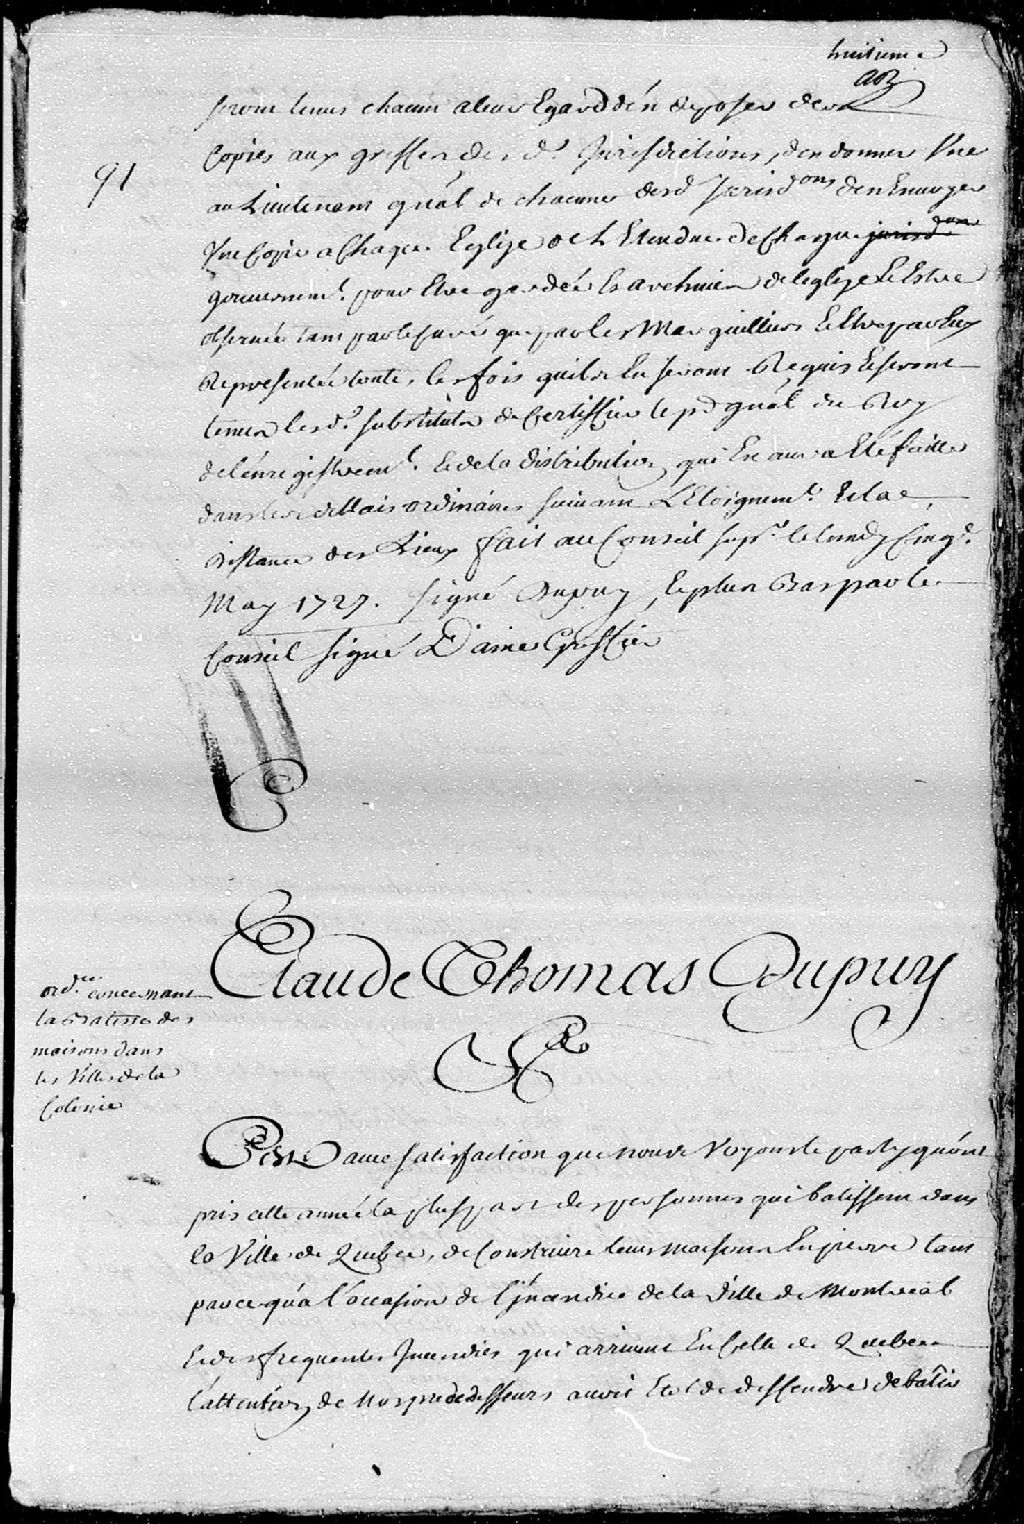 huitieme
91
seront tenus chacun a leur Egard d'en deposer des
Copies aux greffes des d. Jurisdictions, d'en donner Une
au Lieutenant gnāl de chacune desd. Jurisd.ons d'en Envoyer
Une Copie a Chaque Eglise de L'Etendue de Chaque jurisd.on
gouvernem.t pour Etre gardée Es archives de l'eglise Et Estre
observée tant par le Curé que par les Marguilliers Et Etre par Eux
Representée toutes les fois qu'ils En seront Requis Et seront
tenus lesd. substituts de Certiffier le p.r gnāl du Roy
de l'enregistrem.t Et de la distribution qui En aura Eté faitte
dans les dellais ordinaires suivant L'Eloignem.t Et la
distance des Lieux fait au Conseil sup.r le lundy Cinq.e
May 1727. signé Dupuy, Et plus Bas par le
Conseil signé Daine Greffier
Claude Thomas Dupuy
&c
ord.ce concernant
la Batisse des
maisons dans
les Villes de la
Colonie
C'Est avec satisfaction que nous Voyons le party qu'ont
pris cette année la pluspart des personnes qui batissent dans
la Ville de Quebec, de Construire leurs maisons En pierre tant
parce qu'a l'occasion de l'Jncendie de la Ville de Montreal
Et des frequentes Jncendies qui arrivent En Celle de Quebec
l'attention de nos predecesseurs avoit Eté de deffendre de batir